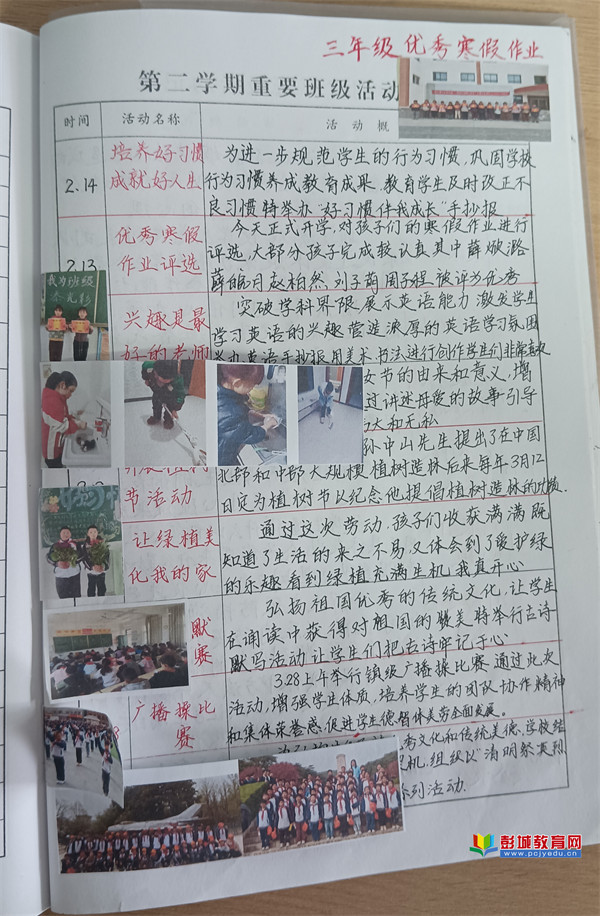 三年级优秀寒假作业
第二学期重要班级活动
时间 活动名称 活动概
2.14
培养好习惯
成就好人生
为进一步规范学生的行为习惯,巩固学校
行为习惯养成教育成果,教育学生及时改正不
良习惯特举办"好习惯伴我成长"手抄报
2.13
优秀寒假
作业评选
今天正式开学,对孩子们的寒假作业进行
评选,大部分孩子完成较认真其中薛
薛皓月赵柏然,刘子萌周子程被评为优秀
我为班级
添光彩
兴趣是最
好的老师
突破学科界限,展示英语能力激发学生
学习英语的兴趣营造浓厚的英语学习氛围
举办英语手抄报用美术书法进行创作学生们非常喜欢
女节的由来和意义,增
过讲述母爱的故事引导
大和无私
孙中山先生提出了在中国
节活动
北部和中部大规模植树造林后来每年3月12
日定为植树节以纪念他提倡植树造林的功绩。
让绿植美
化我的家
通过这次劳动,孩子们收获满满既
知道了生活的来之不易又体会到了爱护绿
的乐趣看到绿植充满生机,我真开心
默
赛
弘扬祖国优秀的传统文化,让学生
在诵读中获得对祖国的赞美特举行古诗
默写活动让学生们把古诗牢记于心
广播操比
赛
3.28上午举行镇级广播操比赛通过此次
活动,增强学生体质,培养学生的团队协作精神
和集体荣誉感,促进学生德智体美劳全面发展。
秀文化和传统美德,学校结
机,组织以"清明祭英烈
系列活动.
彭城教育网
www.pcjyedu.cn